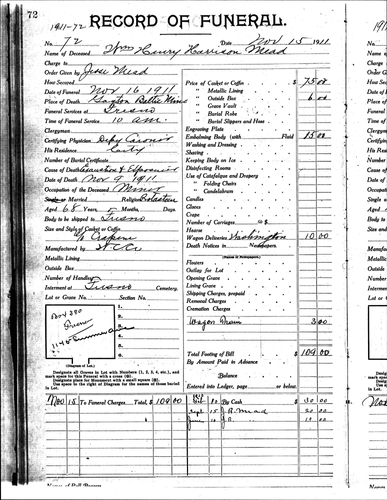 72
RECORD OF FUNERAL.
1911-72
No. 72 Date Nov 15 1911
Name of Deceased Wm Henry Harrison Mead
Charge to
Order Given by Jesse Mead
How Secured
Date of Funeral Nov 16 1911
Place of Death
Funeral Services at Fresno
Time of Funeral Service 10 am.
Clergyman
Certifying Physician Depy Coroner
His Residence City
Number of Burial Certificate
Cause of Death Exhaustion & Exposure
Date of Death Nov 9 1911
Occupation of the Deceased Miner
Single or Married Religion
Aged 68 Years, 5 Months, Days.
Body to be shipped to Fresno
Size and Style of Casket or Coffin
6/3 Crepe
Manufactured by
Metallic Lining
Outside Box
Number of Handles
Interment at Fresno Cemetery.
Lot or Grave No. Section No.
Box 280
Fresno
1.
2.
3.
4.
5.
6.
(Diagram of Lot.)
Designate all Graves in Lot with Numbers (1, 2, 3, 4, etc.), and
mark space for this Funeral with a cross (X).
Designate place for Monument with a small square (□).
Use space to the right of Diagram for the names of those buried
in Lot.
Price of Casket or Coffin $ 75 00
" Metallic Lining
" Outside Box 6 00
" Grave Vault
" Burial Robe
" Burial Slippers and Hose
Engraving Plate
Embalming Body (with Fluid 15 00
Washing and Dressing
Shaving
Keeping Body on Ice
Disinfecting Rooms
Use of Catafalque and Drapery
" Folding Chairs
" Candelabrum
Candles
Gloves
Crape
Number of Carriages @ $
Hearse
Wagon Deliveries Washington 10 00
Death Notices in Newspapers
(Names of Newspapers.)
Flowers
Outlay for Lot
Opening Grave
Lining Grave
Shipping Charges, prepaid
Removal Charges
Cremation Charges
Wagon Drain 3 00
Total Footing of Bill $ 109 00
By Amount Paid in Advance
Balance
Entered into Ledger, page or below.
Nov 15 To Funeral Charges Total, $ 109 00
By Cash $ 50 00
Sept 15 J.R. Mead 20 00
June